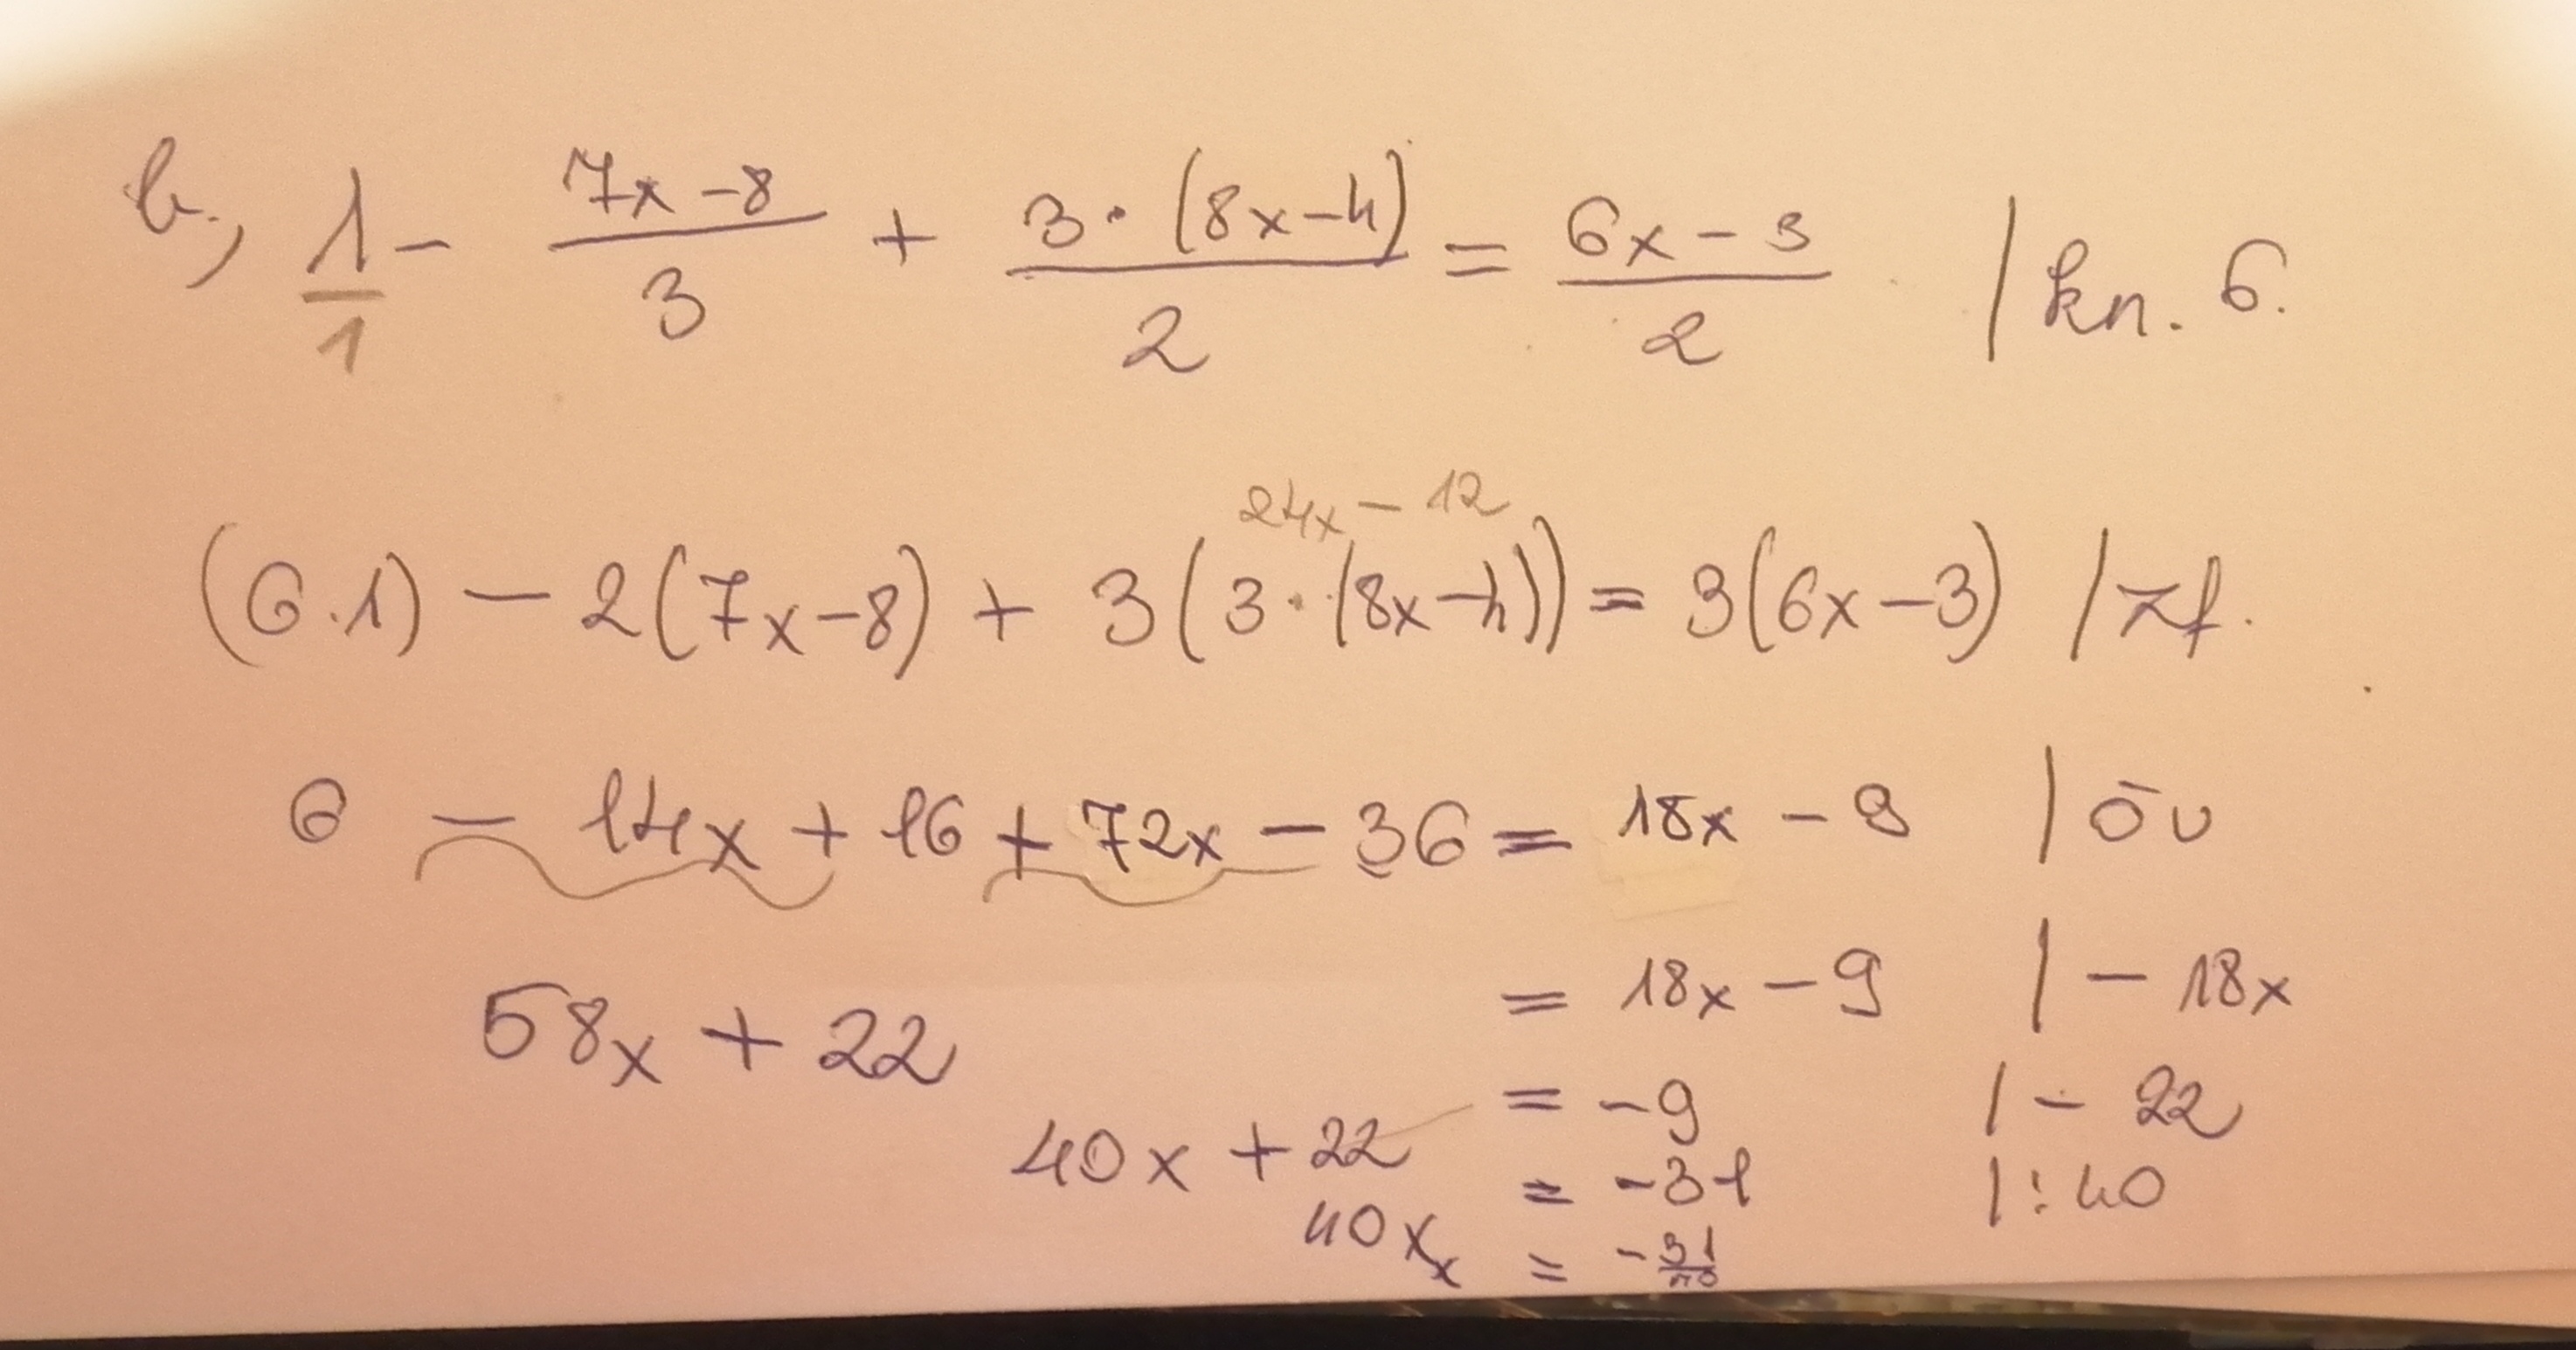 b., 1/1 - (7x-8)/3 + 3·(8x-4)/2 = (6x-3)/2 | kn. 6.
24x - 12
(6.1) - 2(7x-8) + 3(3·(8x-4)) = 3(6x-3) | zf.
6 - 14x + 16 + 72x - 36 = 18x - 9 | öv
58x + 22 = 18x - 9 | - 18x
40x + 22 = -9 | - 22
40x = -31 | : 40
x = -31/40